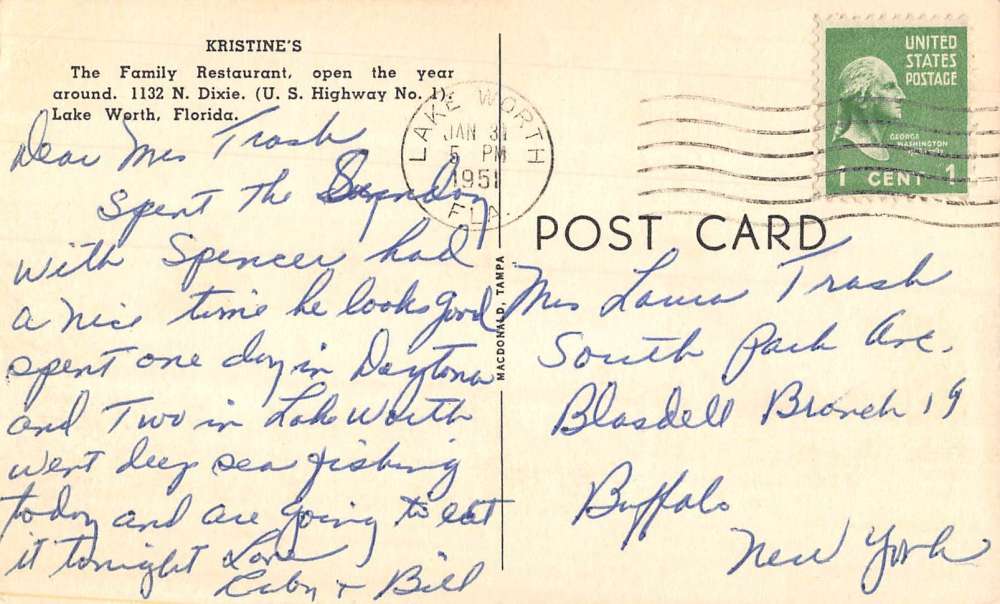 KRISTINE'S
The Family Restaurant, open the year
around. 1132 N. Dixie. (U. S. Highway No. 1),
Lake Worth, Florida.
Dear Mrs Trash
Spent the Sunday
with Spencer had
a nice time he looks good
spent one day in Daytona
and Two in Lake Worth
went deep sea fishing
today and are going to eat
it tonight Love
+ Bill
LAKE WORTH
JAN 31
5 PM
1951
FLA.
UNITED
STATES
POSTAGE
GEORGE
WASHINGTON
1 CENT 1
POST CARD
MACDONALD, TAMPA
Mrs Laura Trash
South Park Ave.
Blasdell Branch 19
Buffalo
New York